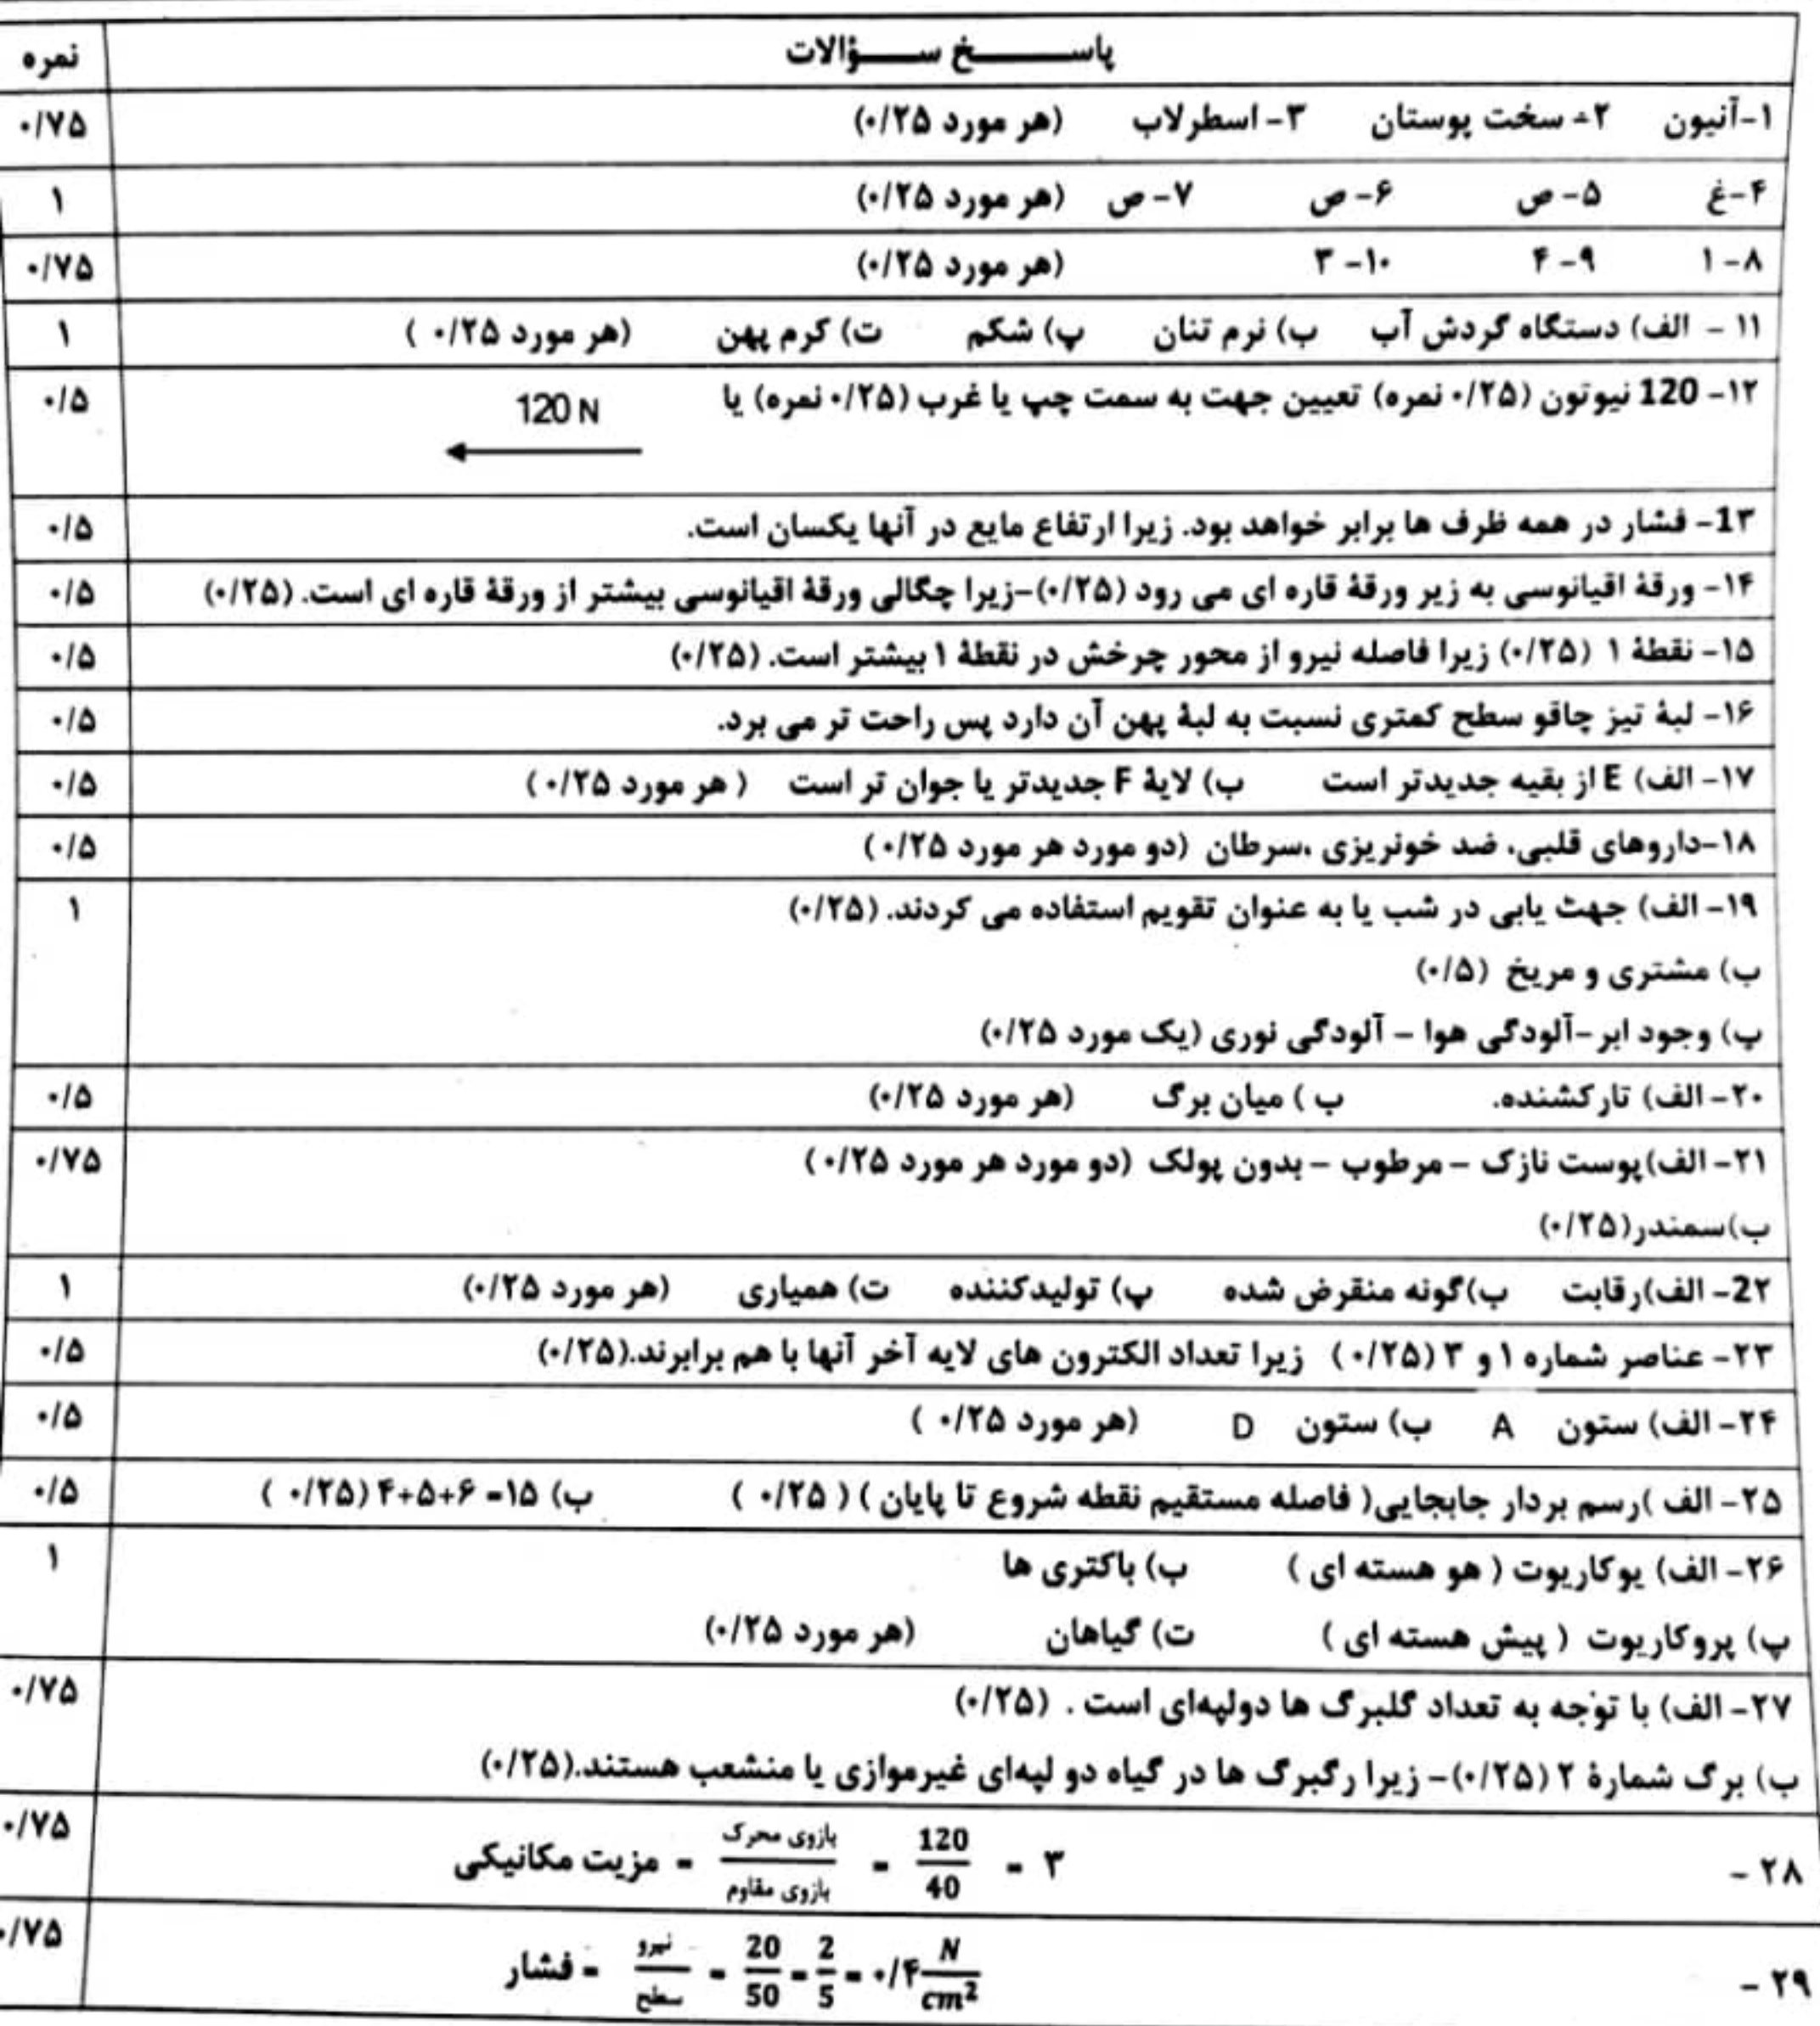 پاســـــخ ســــؤالات نمره
۱-آنیون ۲- سخت پوستان ۳- اسطرلاب (هر مورد ۰/۲۵) ۰/۷۵
۴-غ ۵- ص ۶- ص ۷- ص (هر مورد ۰/۲۵) ۱
۸- ۱ ۹- ۴ ۱۰- ۳ (هر مورد ۰/۲۵) ۰/۷۵
۱۱ - الف) دستگاه گردش آب ب) نرم تنان پ) شکم ت) کرم پهن (هر مورد ۰/۲۵ ) ۱
۱۲- 120 نیوتون (۰/۲۵ نمره) تعیین جهت به سمت چپ یا غرب (۰/۲۵ نمره) یا 120 N ۰/۵
1۳- فشار در همه ظرف ها برابر خواهد بود. زیرا ارتفاع مایع در آنها یکسان است. ۰/۵
۱۴- ورقهٔ اقیانوسی به زیر ورقهٔ قاره ای می رود (۰/۲۵)-زیرا چگالی ورقهٔ اقیانوسی بیشتر از ورقهٔ قاره ای است. (۰/۲۵) ۰/۵
۱۵- نقطهٔ ۱ (۰/۲۵) زیرا فاصله نیرو از محور چرخش در نقطهٔ ۱ بیشتر است. (۰/۲۵) ۰/۵
۱۶- لبهٔ تیز چاقو سطح کمتری نسبت به لبهٔ پهن آن دارد پس راحت تر می برد. ۰/۵
۱۷- الف) E از بقیه جدیدتر است ب) لایهٔ F جدیدتر یا جوان تر است ( هر مورد ۰/۲۵) ۰/۵
۱۸-داروهای قلبی، ضد خونریزی ،سرطان (دو مورد هر مورد ۰/۲۵) ۰/۵
۱۹- الف) جهت یابی در شب یا به عنوان تقویم استفاده می کردند. (۰/۲۵) ۱
ب) مشتری و مریخ (۰/۵)
پ) وجود ابر-آلودگی هوا - آلودگی نوری (یک مورد ۰/۲۵)
۲۰- الف) تارکشنده. ب ) میان برگ (هر مورد ۰/۲۵) ۰/۵
۲۱- الف)پوست نازک - مرطوب - بدون پولک (دو مورد هر مورد ۰/۲۵) ۰/۷۵
ب)سمندر(۰/۲۵)
2۲- الف)رقابت ب)گونه منقرض شده پ) تولیدکننده ت) همیاری (هر مورد ۰/۲۵) ۱
۲۳- عناصر شماره ۱ و ۳ (۰/۲۵) زیرا تعداد الکترون های لایه آخر آنها با هم برابرند.(۰/۲۵) ۰/۵
۲۴- الف) ستون A ب) ستون D (هر مورد ۰/۲۵ ) ۰/۵
۲۵- الف )رسم بردار جابجایی( فاصله مستقیم نقطه شروع تا پایان ) ( ۰/۲۵ ) ب) ۱۵= ۶+۵+۴ (۰/۲۵ ) ۰/۵
۲۶- الف) یوکاریوت ( هو هسته ای ) ب) باکتری ها ۱
پ) پروکاریوت ( پیش هسته ای ) ت) گیاهان (هر مورد ۰/۲۵)
۲۷- الف) با توجه به تعداد گلبرگ ها دولپه‌ای است . (۰/۲۵) ۰/۷۵
ب) برگ شمارهٔ ۲ (۰/۲۵)- زیرا رگبرگ ها در گیاه دو لپه‌ای غیرموازی یا منشعب هستند.(۰/۲۵)
۲۸ - مزیت مکانیکی = بازوی محرک / بازوی مقاوم = 120 / 40 = ۳ ۰/۷۵
۲۹ - فشار = نیرو / سطح = 20 / 50 = 2 / 5 = ۰/۴ N / cm² ۰/۷۵